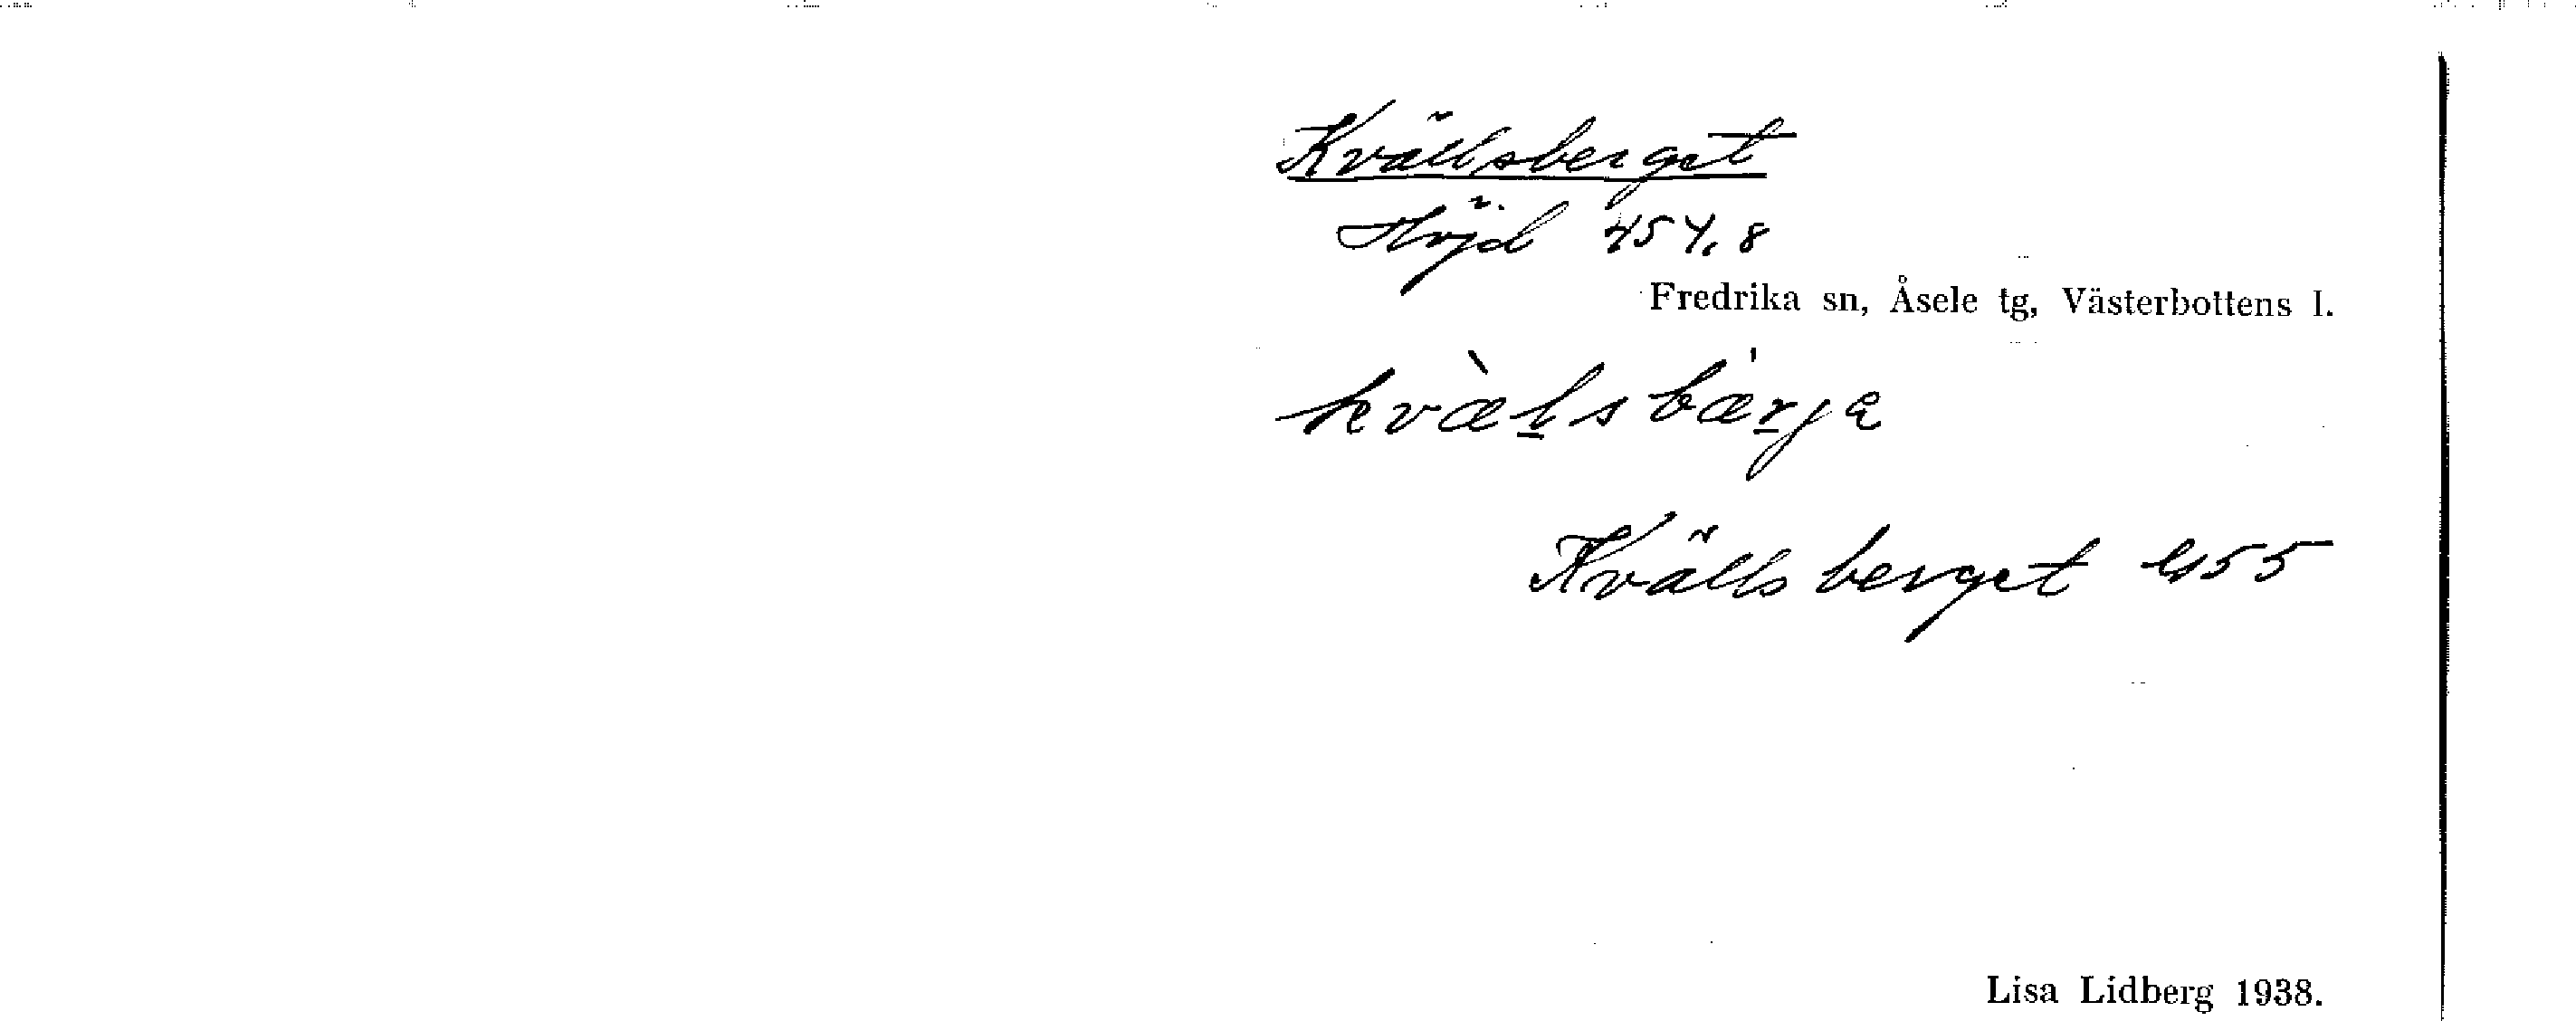 Kvällsberget
Höjd 454,8
Fredrika sn, Åsele tg, Västerbottens l.
kvæ̀l̲sbær̲ja
Kvällsberget 455
Lisa Lidberg 1938.